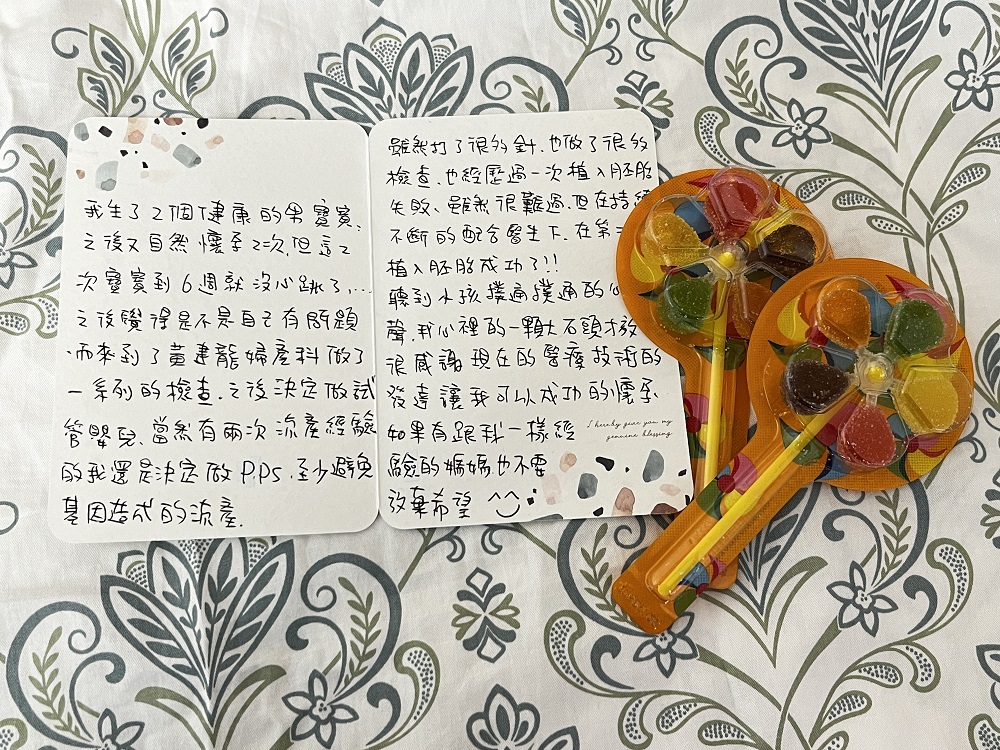 我生了2個健康的男寶寶、
之後又自然懷孕2次,但這2
次寶寶到6週就沒心跳了,...
之後覺得是不是自己有問題
,而來到了黃建龍婦產科做了
一系列的檢查.之後決定做試
管嬰兒、當然有兩次流產經驗
的我還是決定做P.P.D.S.至少避免
基因造成的流產.
雖然打了很多針.也做了很多
檢查.也經歷過一次植入胚胎
失敗、雖然很難過.但在持續
不斷的配合醫生下.在第二
植入胚胎成功了!!
聽到小孩撲通撲通的心
聲.我心裡的一顆大石頭才放
很感謝現在的醫療技術的
發達讓我可以成功的懷孕
如果有跟我一樣經
驗的媽媽也不要
放棄希望 ^^
I hereby give you my
genuine blessing